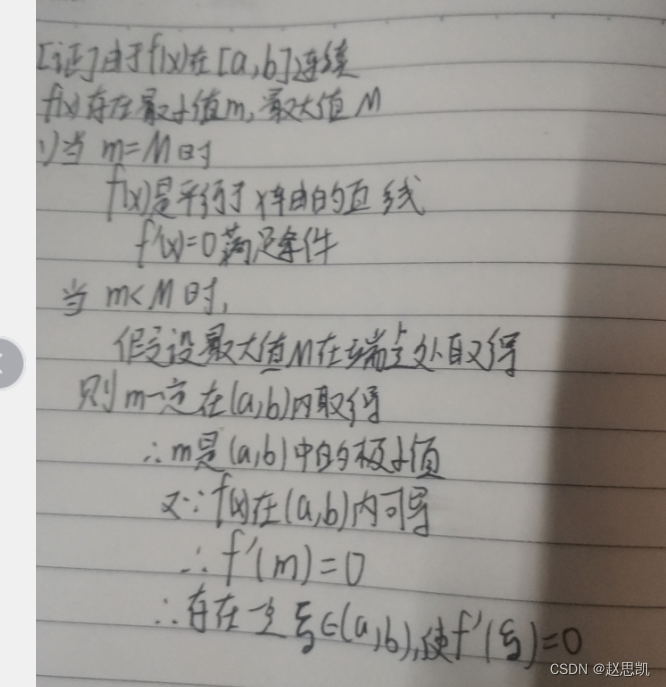 [证]由于f(x)在[a,b]连续
f(x)存在最小值m,最大值M
1)当 m=M时
f(x)是平行于x轴的直线
f'(x)=0满足条件
当 m<M时,
假设最大值M在端点处取得
则m一定在(a,b)内取得
∴m是(a,b)中的极小值
又∵f(x)在(a,b)内可导
∴f'(m)=0
∴存在一点ξ∈(a,b),使f'(ξ)=0
CSDN @赵思凯